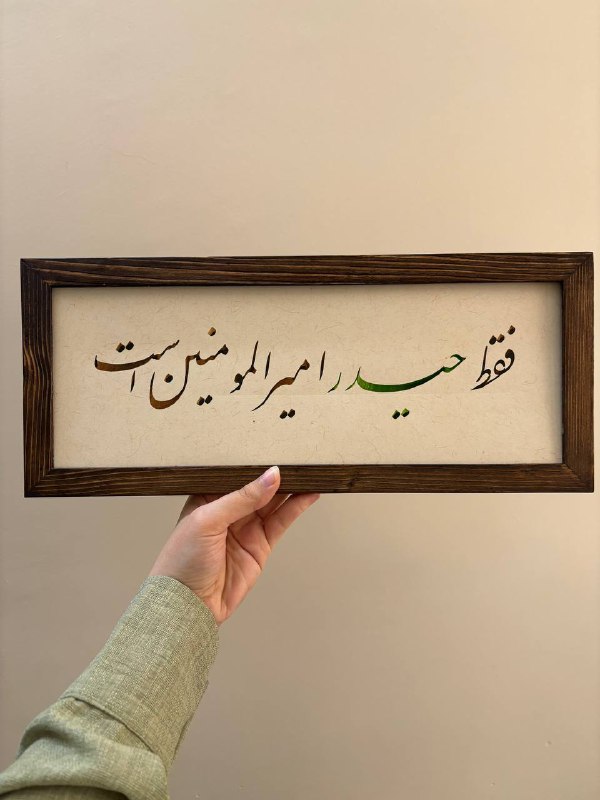 فقط حیدر امیرالمومنین است